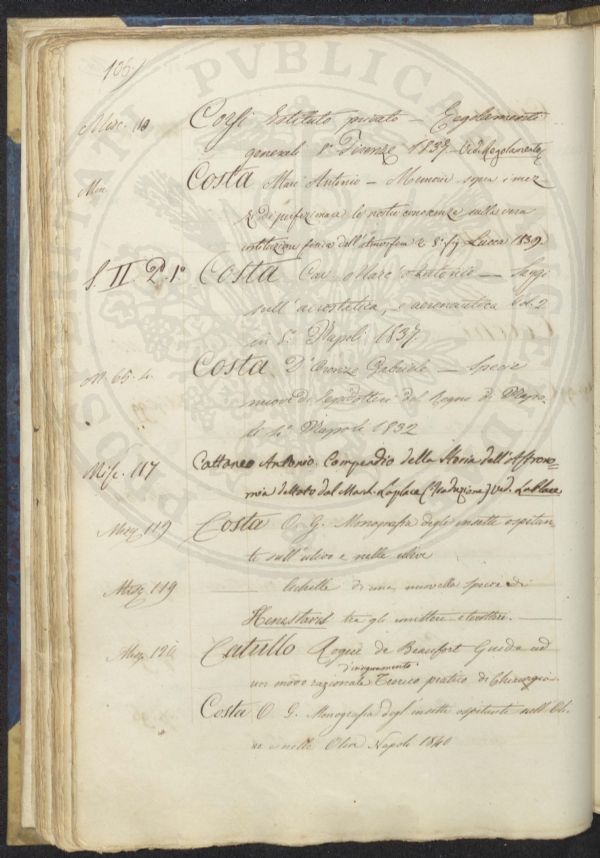 106
Misc. 10 Corsi Istituto privato – Regolamenti
generali 8° Firenze 1837 – Vedi Regolamento
Costa Marc' Antonio – Memoria sopra i mez
zi di perfezionare le nostre conoscenze sulla vera
costituzione fisica dell'atmosfera 8° fig. Lucca 1839.
S. II P. 1° Costa Cav. Marc' Antonio – Saggi
sull' aerostatica, e aeronautica Vol. 2
in 8° Napoli 1837
65. 4. Costa D' Oronzo Gabriele – Specie
nuove di Lepidotteri del Regno di Napo-
di 4° Napoli 1832
Misc. 117 Cattaneo Antonio. Compendio della Storia dell'Astrono-
mia dettato dal March. Laplace (Traduzione) ved. Laplace
Misc. 119 Costa O. G. Monografia degli insetti ospitan
ti sull'ulivo e nelle olive
Misc. 119 — di una novella specie di
tra gli emitteri eterotteri. —
Misc. 120 Catullo Rogier de Beaufort Guida ad
d'insegnamento
un modo razionale Teorico pratico di Chirurgia
Costa O. G. Monografia degl' insetti ospitanti nell' Oli-
vo e nelle Olive Napoli 1840
PVBLICA